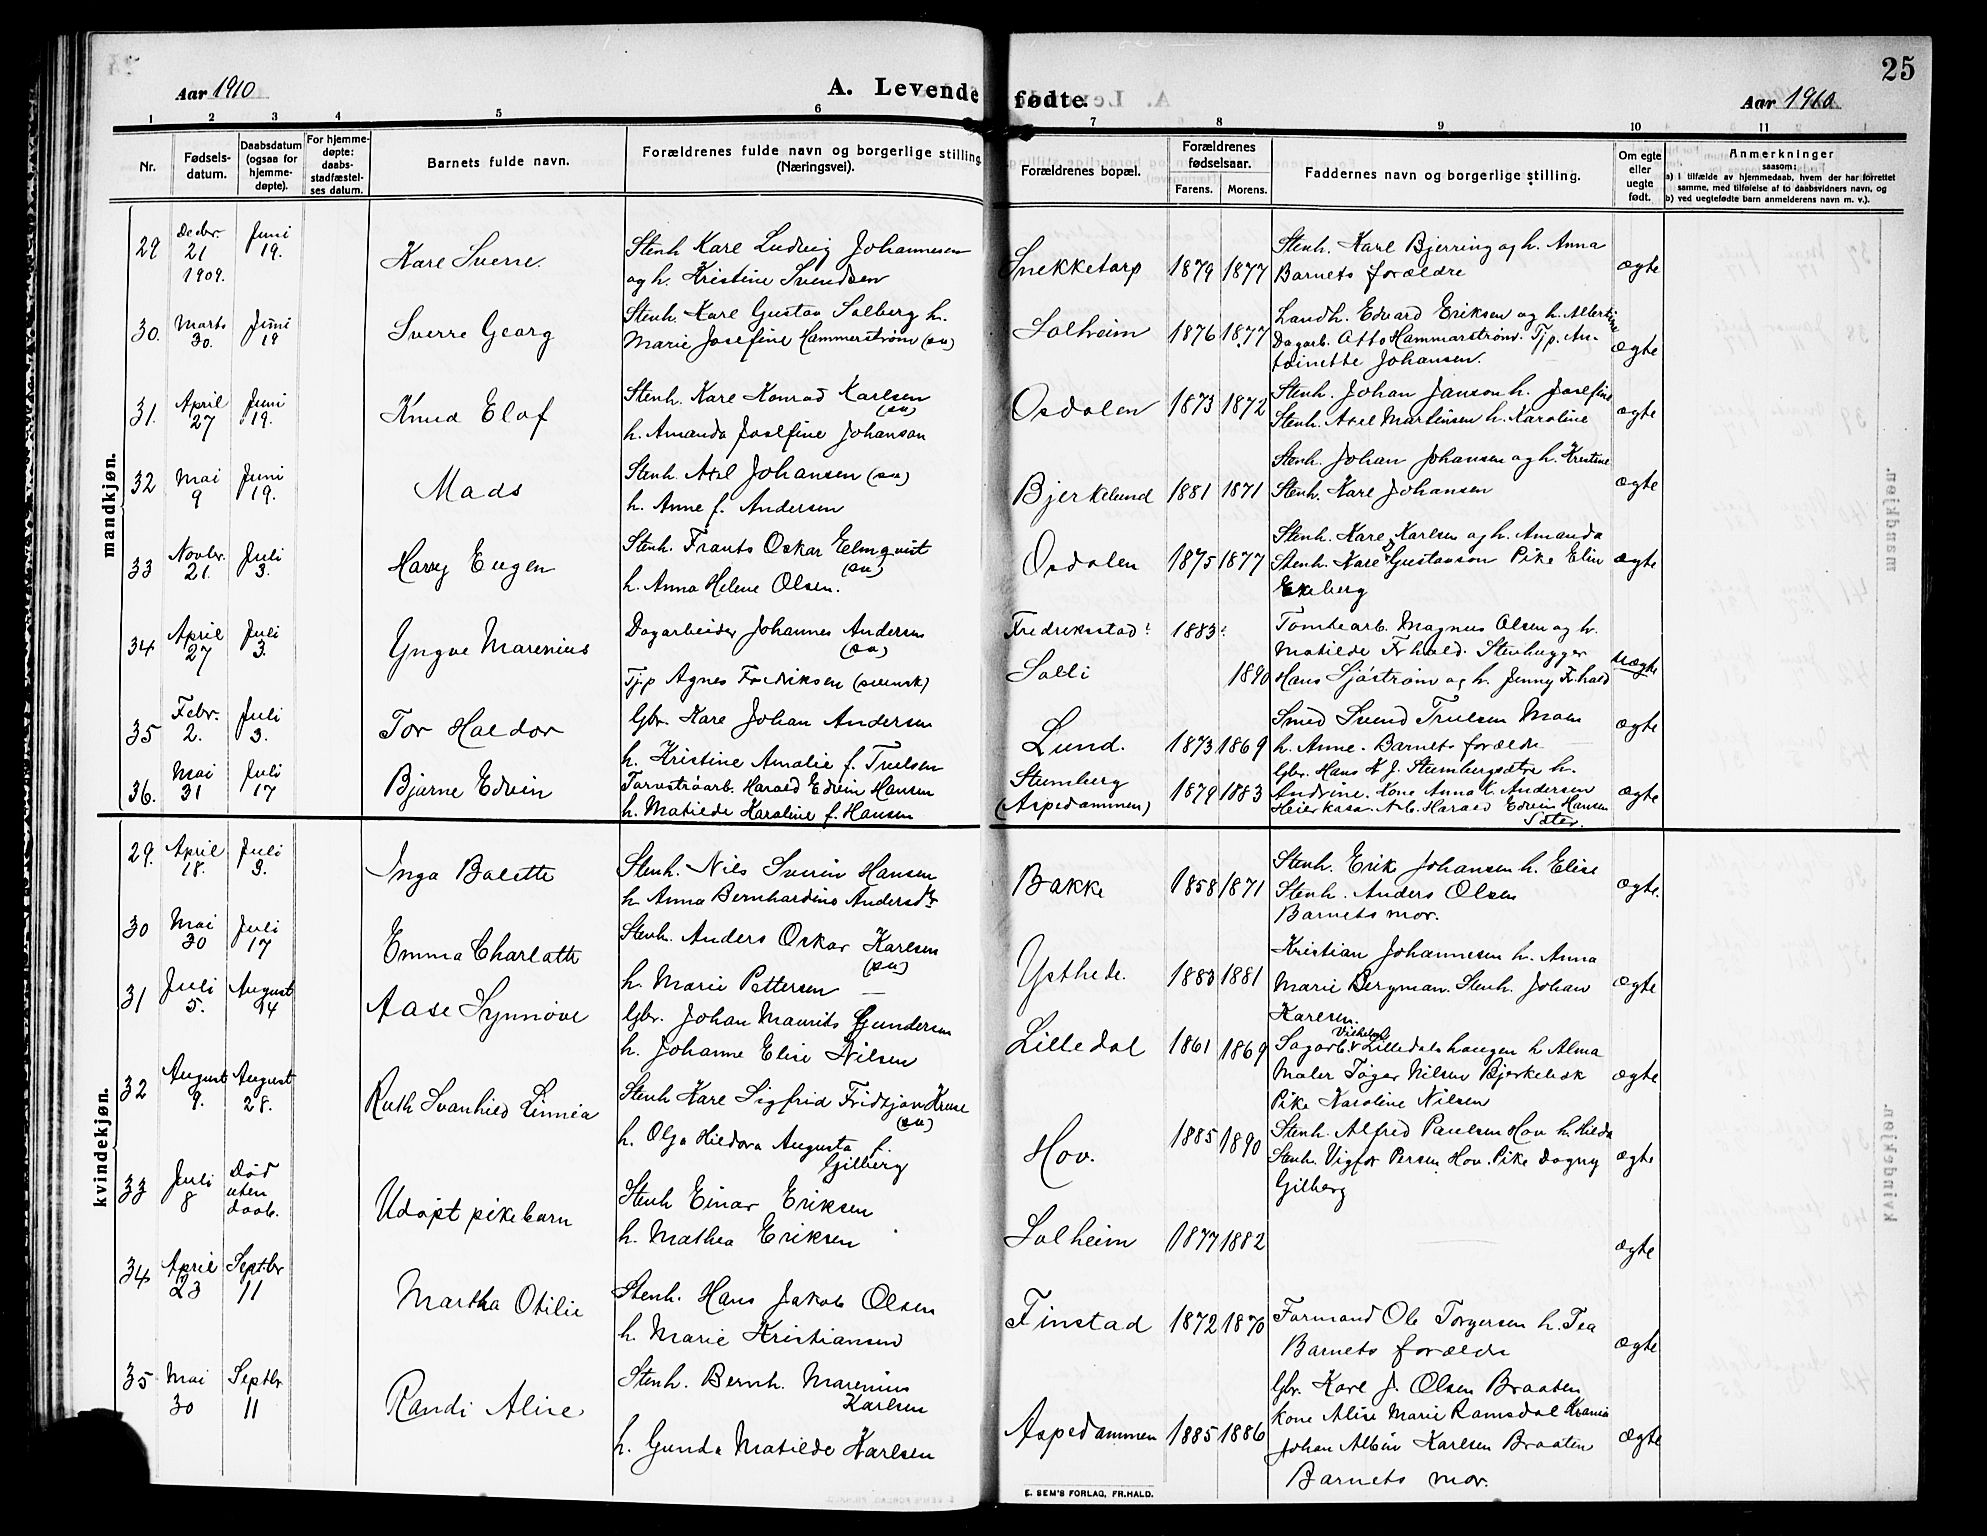 25
Aar 1910
A. Levende fødte.
Aar 1910.
1 2 3 4 5 6 7 8 9 10 11
Nr.
Fødsels-
datum.
Daabsdatum
(ogsaa for
hjemme-
døpte).
For hjemme-
døpte:
daabs-
stadfæstel-
ses datum.
Barnets fulde navn.
Forældrenes fulde navn og borgerlige stilling
(Næringsvei).
Forældrenes bopæl.
Forældrenes
fødselsaar.
Farens. Morens.
Faddernes navn og borgerlige stilling.
Om egte
eller
uegte
født.
Anmerkninger
saasom:
a) i tilfælde av hjemmedaab, hvem der har forrettet
samme, med tilføielse af to daabsvidners navn, og
b) ved uegtefødte barn anmelderens navn m. v.).
mandkjøn.
29 Decbr. 21 1909. Juni 19. Kare Sverre.
Stenh Karl Ludvig Johannesen
og h. Kristine Svendsen
Snekketorp 1879 1877
Stenh. Karl Bjerring og h. Anna
Barnets forældre
ægte
30. Marts 30. Juni 19 Sverre Georg
Stenh. Karl Gustav Solberg h.
Marie Josefine Hammerstrøm (sv)
Solheim 1876 1877
Landh. Edvard Eriksen og h. Albertine
Dagarb. Otto Hammarstrøm. Tjp. An-
toinette Johansen.
ægte
31. April 27 Juni 19. Knud Elof
Stenh. Karl Konrad Karlsen
(sv)
h. Amanda Josefine Johanson
Osdalen 1873 1872
Stenh. Johan Janson h. Josefine
Stenh. Axel Martinsen h. Karoline
ægte
32 Mai 9 Juni 19. Mads
Stenh. Axel Johansen (sv)
h. Anne f. Andersen
Bjerkelund 1881 1871
Stenh. Johan Johansen og h. Kristine
Stenh. Karl Johansen
ægte
33 Novbr. 21. Juli 3. Harry Eugen
Stenh. Frants Oskar Elmqvist
(sv)
h. Anna Helene Olsen.
Osdalen 1875 1877
Stenh. Karl Karlsen og h. Amanda
Stenh. Karl Gustavson Pike Elin
Ekeberg
ægte
34 April 27 Juli 3. Yngve Marenius
Dagarbeider Johannes Andersen
(sv)
Tjp Agnes Fredriksen (svensk)
Fredriksstad: 1883:
Solli 1890
Tomtearb. Magnus Olsen og h.
Matilde Frhald. Stenhugger
Hans Sjöstrøm og h. Jenny Fr.hald
uægte
35 Febr. 2. Juli 3. Tor Haldor
Gbr. Karl Johan Andersen
h. Kristine Amalie f. Truelsen
Lund. 1873 1869
Smed Svend Truelsen Moen
h. Anne. Barnets forældre
ægte
36. Mai 31 Juli 17 Bjarne Edvin
Torvstrøarb. Harald Edvin Hansen
h. Matilde Karoline f. Hansen
Stumberg
(Aspedammen) 1879 1883
Gbr. Hans K J. Stumbergsætre h.
Andrine. Kone Anna K. Andersen
Heierkasa. Arb. Harald Edvin Hansen
Sæter.
ægte
kvindekjøn.
29. April 18. Juli 3. Inga Bolette
Stenh. Nils Sverin Hansen
h. Anna Bernhardine Andersdtr
Bakke 1858 1871
Stenh. Erik Johansen h. Elise
Stenh. Anders Olsen
Barnets mor.
ægte.
30 Mai 30 Juli 17 Emma Charlotte
Stenh. Anders Oskar Karlsen
(sv)
h. Marie Pettersen
Ysthede. 1883 1881
Kristian Johannesen h. Anna
Marie Bergman. Stenh. Johan
Karlsen.
ægte
31 Juli 5. August 14 Aase Synnøve
Gbr. Johan Maurits Gundersen
h. Johanne Elise Nilsen
Lilledal 1861 1869
Sagarb. Vilhelm Lilledalshaugen h Alma
Maler Tøger Nilsen Bjerkebæk
Pike Karoline Nilsen
ægte
32 August 9. August 28. Ruth Svanhild Linnéa
Stenh Karl Sigfrid Fridtjon Kruse
(sv)
h. Olga Hildora Augusta f.
Gilberg
Hov. 1885 1890
Stenh. Alfred Paulsen Hov h. Hilda
Stenh. Vigfor Persen Hov. Pike Dagny
Gilberg
ægte
33 Juli 8 Død uten daab. Udøpt pikebarn
Stenh Einar Eriksen
h. Mathea Eriksen
Solheim 1877 1882
ægte
34 April 23 Septbr 11 Martha Otilie
Stenh. Hans Jakob Olsen
h. Marie Kristiansen
Finstad 1872 1870
Formand Ole Torgersen h. Tea
Barnets forældre
ægte
35 Mai 30 Septbr 11 Randi Alise
Stenh. Bernh. Marenius
Karlsen
h. Gunda Matilde Karlsen
Aspedammen 1885 1886
Gbr. Karl J. Olsen Braaten
kone Alise Marie Ramsdal
Johan Albin Karlsen Braaten
Barnets mor.
ægte
E. SEM'S FORLAG, FR.HALD.